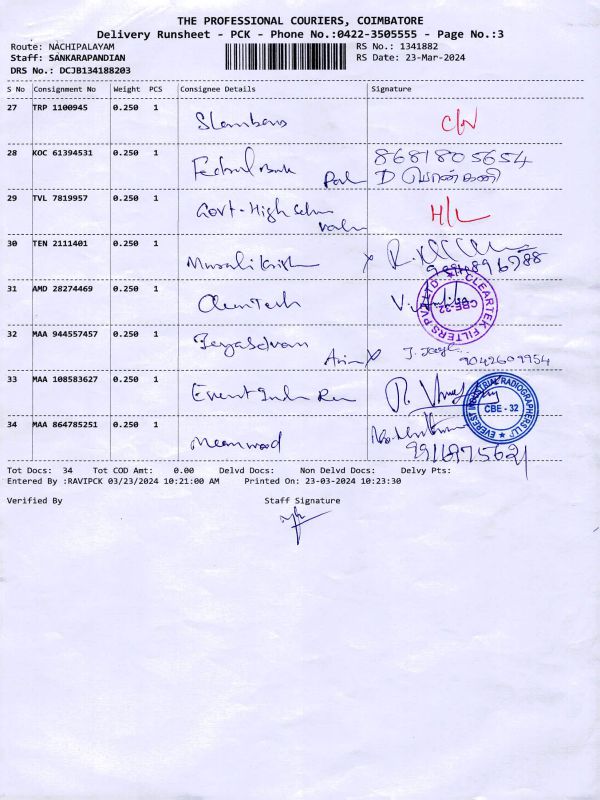 THE PROFESSIONAL COURIERS, COIMBATORE
Delivery Runsheet - PCK - Phone No.:0422-3505555 - Page No.:3
Route: NACHIPALAYAM
RS No.: 1341882
Staff: SANKARAPANDIAN
RS Date: 23-Mar-2024
DRS No.: DCJB134188203
S No Consignment No Weight PCS Consignee Details Signature
27 TRP 1100945 0.250 1
28 KOC 61394531 0.250 1 Federal Bank 8681805654
D பொன்கனி
29 TVL 7819957 0.250 1 Govt. High H/L
30 TEN 2111401 0.250 1
31 AMD 28274469 0.250 1
CLEARTEK FILTERS PVT LTD
CBE-32
32 MAA 944557457 0.250 1 9042609954
33 MAA 108583627 0.250 1
EVEREST INDUSTRIAL RADIOGRAPHERS LLP
CBE - 32
34 MAA 864785251 0.250 1 Meanwood
Tot Docs: 34 Tot COD Amt: 0.00 Delvd Docs: Non Delvd Docs: Delvy Pts:
Entered By :RAVIPCK 03/23/2024 10:21:00 AM Printed On: 23-03-2024 10:23:30
Verified By Staff Signature